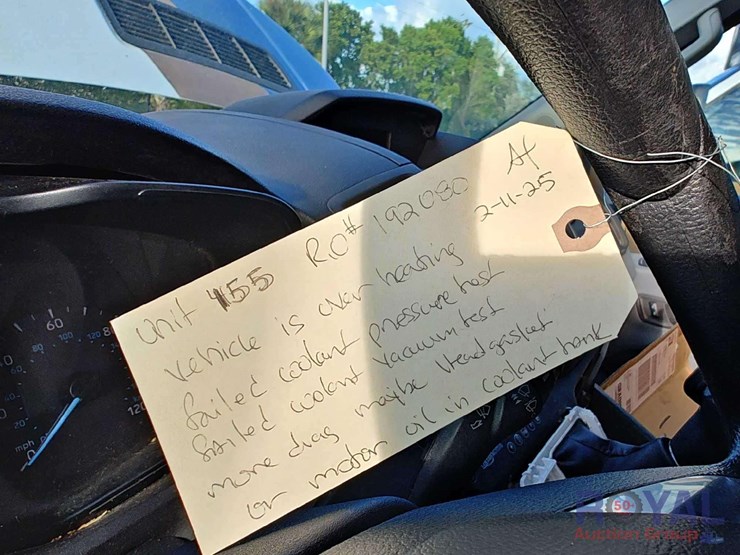 Unit 455 R.O# 192080 At
2-11-25
Vehicle is over heating
failed coolant pressure test
failed coolant vacuum test
more diag maybe Head gasket
or motor oil in coolant tank
60
80
100
120
20
mph
0
ROYAL
50
Auction Group